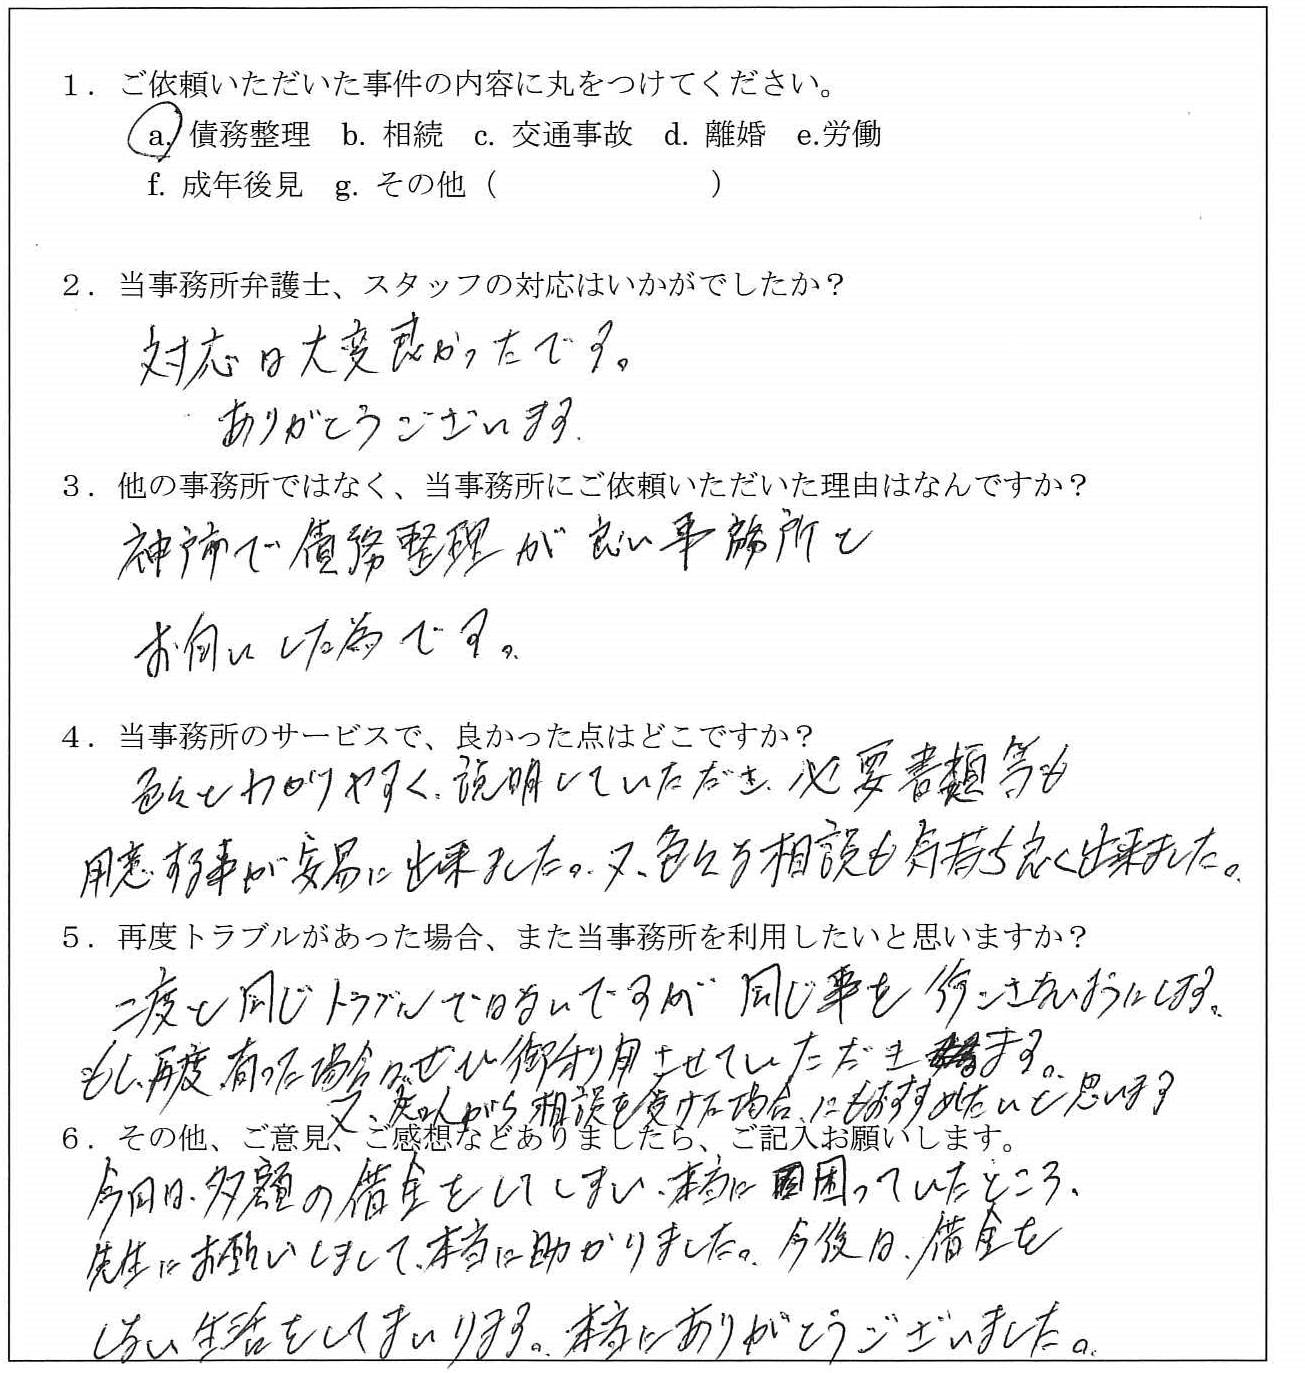 1．ご依頼いただいた事件の内容に丸をつけてください。
a. 債務整理　b. 相続　c. 交通事故　d. 離婚　e.労働
f. 成年後見　g. その他（　　　　　　　）
2．当事務所弁護士、スタッフの対応はいかがでしたか？
対応は大変良かったです。
ありがとうございます。
3．他の事務所ではなく、当事務所にご依頼いただいた理由はなんですか？
神戸市で債務整理が良い事務所と
お伺いした為です。
4．当事務所のサービスで、良かった点はどこですか？
色々とわかりやすく、説明していただき、必要書類等も
用意する事が安易に出来ました。又、色々な相談も気持ち良く出来ました。
5．再度トラブルがあった場合、また当事務所を利用したいと思いますか？
二度と同じトラブルではないですが 同じ事を 行こさないようにします。
もし、再度、有った場合はぜひ御利用させていただきます。
又、友人から相談を受けた場合、にもおすすめしたいと思います
6．その他、ご意見、ご感想などありましたら、ご記入お願いします。
今回は、多額の借金をしてしまい、本当に困っていたところ、
先生にお願いしまして、本当に助かりました。今後は、借金を
しない生活をしてまいります。本当にありがとうございました。